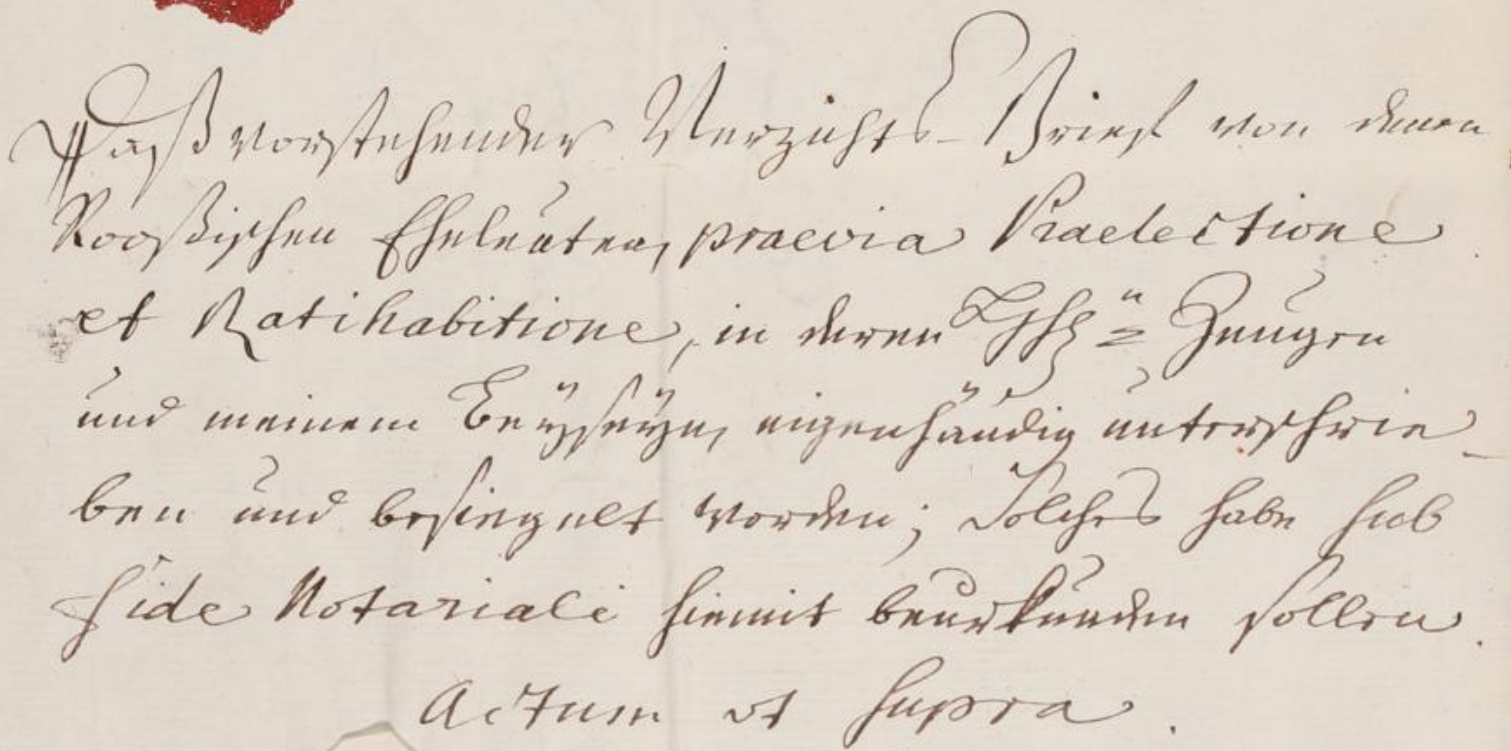 Daß vorstehender Verzichts-Brief von denen
Rooßischen Eheleuten, praevia Praelectione
et Ratihabitione, in deren Zeugen
und meinem Beÿseÿn, eigenhändig unterschrie-
ben und besiegelt worden; Solches habe sub
fide Notariali hiemit beurkunden sollen.
Actum ut supra.